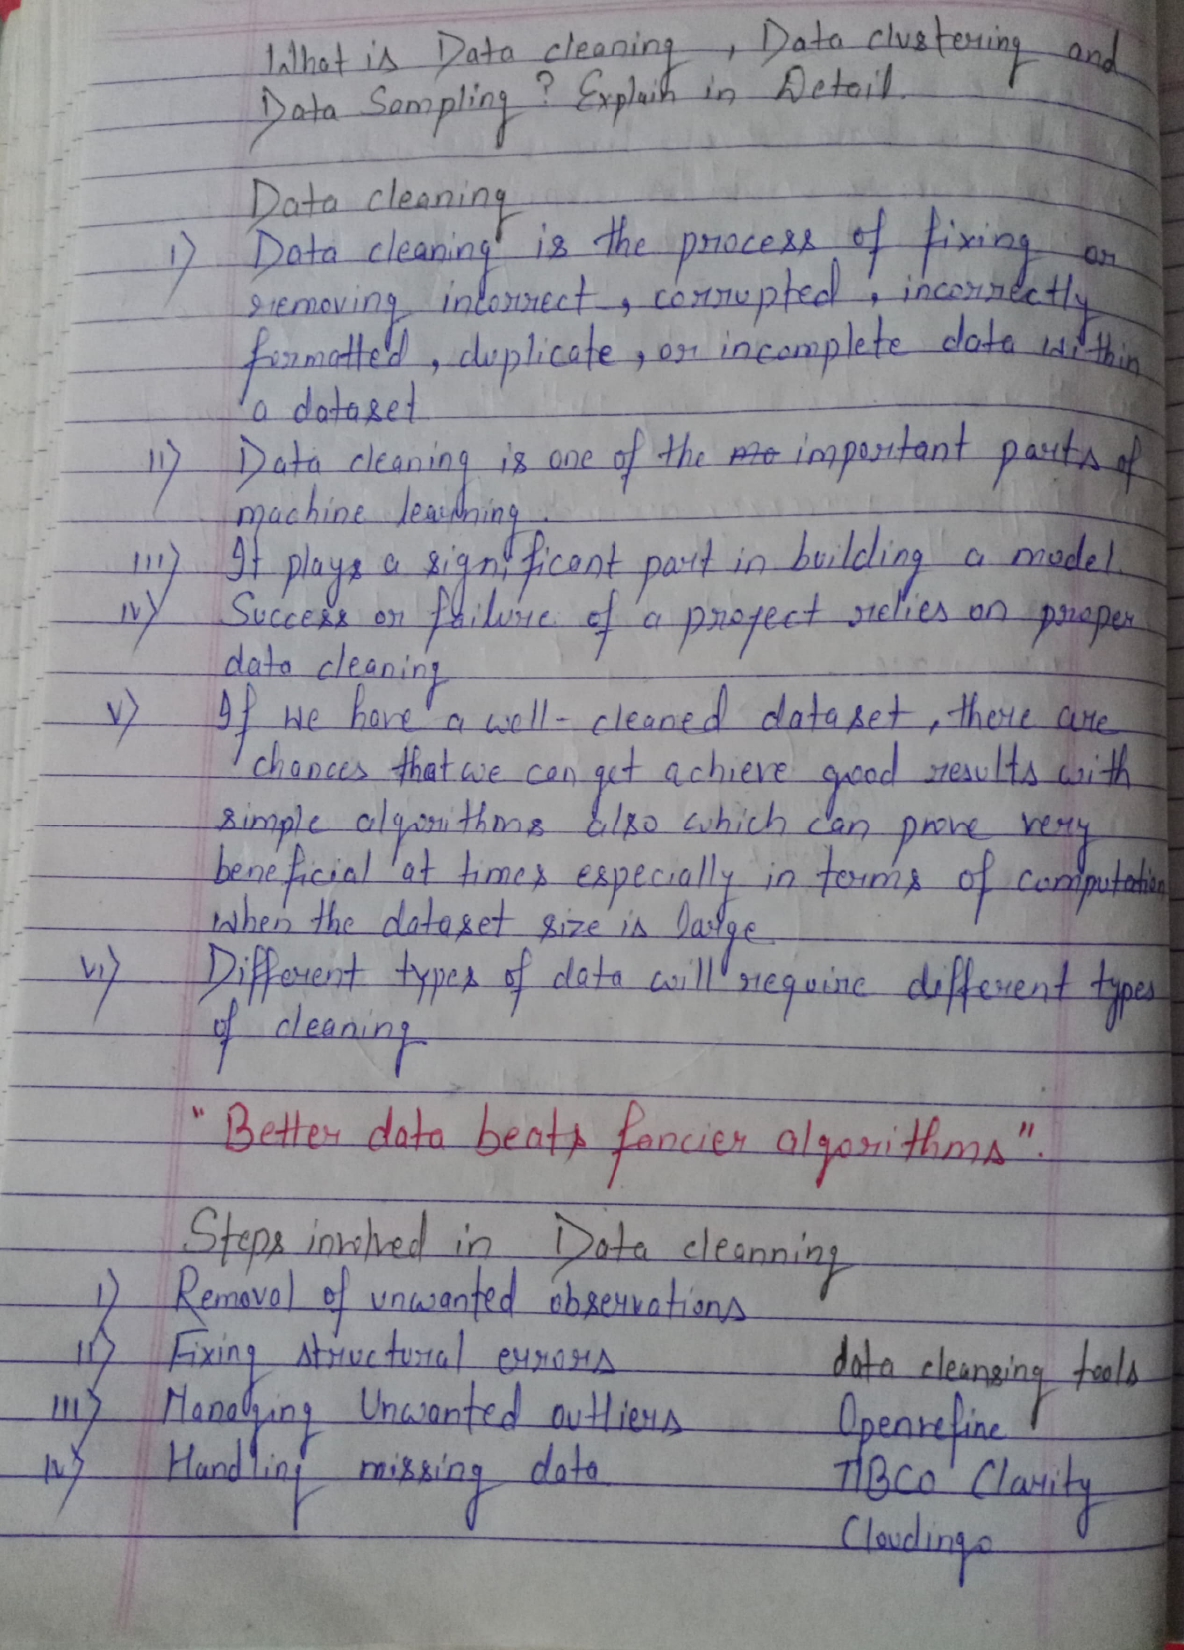 What is Data cleaning, Data clustering and
Data Sampling? Explain in Detail.
Data cleaning
i) Data cleaning is the process of fixing or
removing incorrect, corrupted, incorrectly
formatted, duplicate, or incomplete data within
a dataset
ii) Data cleaning is one of the mo important parts of
machine learning.
iii) It plays a significant part in building a model.
iv) Success or failure of a project relies on proper
data cleaning
v) If we have a well-cleaned dataset, there are
chances that we can get achieve good results with
simple algorithms also which can prove very
beneficial at times especially in terms of computation
when the dataset size is large
vi) Different types of data will require different types
of cleaning
"Better data beats fancier algorithms".
Steps involved in Data cleanning
i) Removal of unwanted observations
ii) Fixing structural errors
data cleansing tools
iii) Managing Unwanted outliers
Openrefine
iv) Handling missing data
TIBCO Clarity
Cloudingo